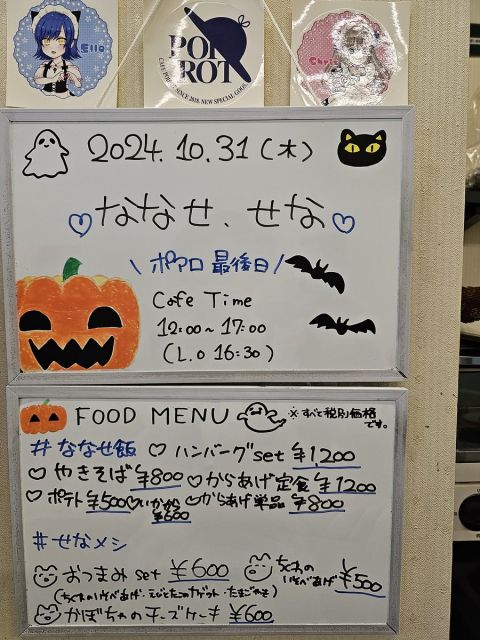 Ello
POI
ROT
2024.10.31(木)
ななせ、せな
\ ポアロ 最後日 /
Cafe Time
12:00~17:00
(L.O 16:30)
FOOD MENU
※すべて税別価格
です。
#ななせ飯 ♡ ハンバーグset ¥1,200
♡ やきそば ¥800 ♡からあげ定食 ¥1200
♡ ポテト ¥500 ♡いかから ¥600 ♡からあげ単品 ¥800
#せなメシ
おつまみset ¥600 ちくわの
いそべあげ ¥500
(ちくわのいそべあげ・えびとたこのナゲット・たまごやき)
かぼちゃのチーズケーキ ¥600